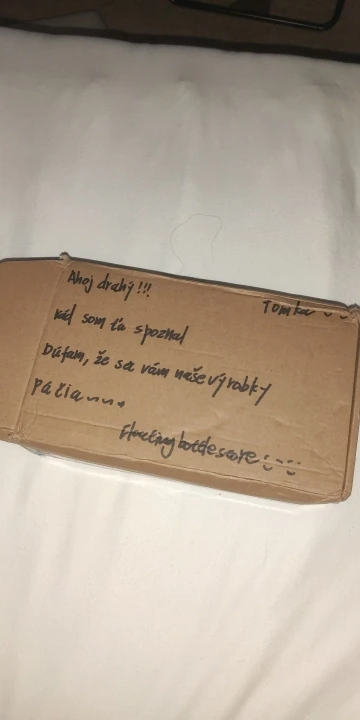 Ahoj drahý!!!
Tomka
rád som ťa spoznal
Dúfam, že sa vám naše výrobky
páčia~~~
Floating bottle score